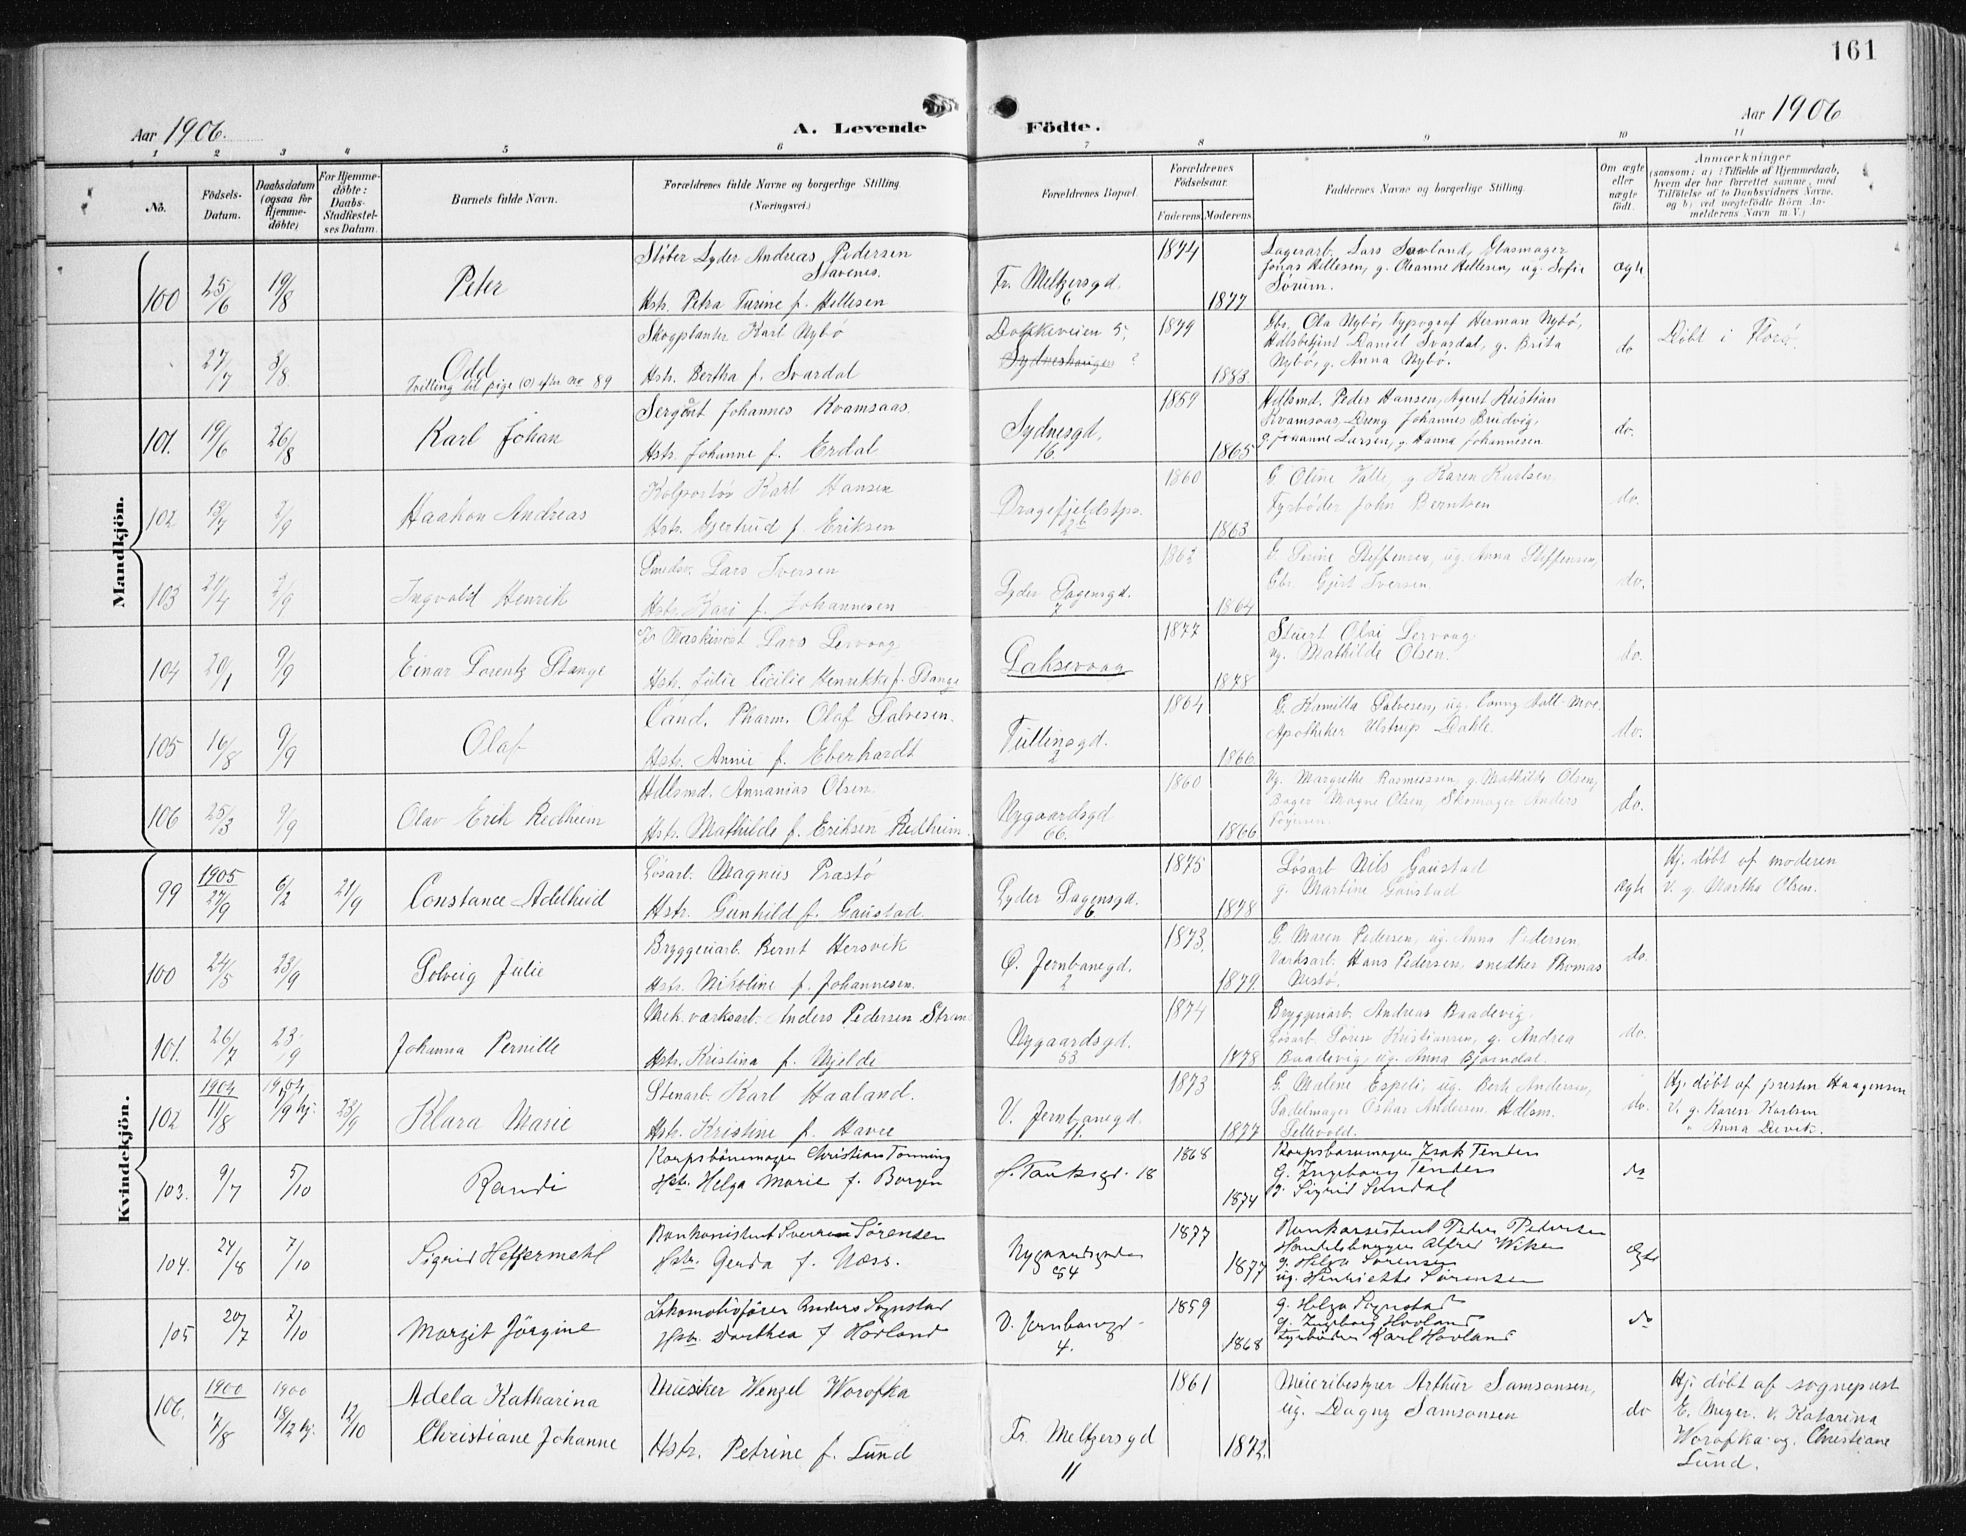 161
Aar 1906.
A. Levende Födte.
Aar 1906
1 2 3 4 5 6 7 8 9 10 11
No.
Födsels-Datum.
Daabsdatum (ogsaa for Hjemme-döbte)
For Hjemme-döbte: Daabs-Stadfæstel-ses Datum.
Barnets fulde Navn.
Forældrenes fulde Navne og borgerlige Stilling
(Næringsvei.)
Forældrenes Bopæl.
Forældrenes Födselsaar.
Faderens. Moderens.
Faddernes Navne og borgerlige Stilling.
Om ægte eller uægte födt.
Anmærkninger
(saasom: a) i Tilfælde af Hjemmedaab, hvem der har forrettet samme, med Tilföielse af to Daabsvidners Navne, og b) ved uægtefödte Börn An-melderens Navn m. V.)
Mandkjön.
100 25/6 19/8 Peter
Støber Lyder Andreas Pedersen Stavenes.
Hstr. Petra Turine f. Hellesen
Fr. Meltzersgd. 6
1874 1877
Lagerarb. Lars Sæland, Glasmager
Jonas Hellesen, g. Oleanne Hellesen, ug. Sofie
Sørum.
ægte
27/7 3/8 Odd
Tvilling til pige (0) efter no 89
Skogplanter Karl Nybø
Hstr. Bertha f. Svardal
Dokkeveien 5,
Sydneshaugen ?
1879 1883
Gbr. Ola Nybø, typograf Herman Nybø,
Hdlsbetjnt Daniel Svardal, g. Brita
Nybø, g. Anna Nybø.
do
Døbt i Florø.
101. 19/6 26/8 Karl Johan
Sergent Johannes Kvamsaas.
Hstr. Johanne f. Erdal
Sydnesgd. 16.
1859 1865
Hdlsmd. Peder Hansen, Agent Kristian
Kvamsaas, Dreng Johannes Brudvig,
g. Johanne Larsen, g. Hanna Johannesen
do.
102 13/7 2/9 Haakon Andreas
Kolportør Karl Hansen
Hstr. Gjertrud f. Eriksen
Dragefjeldstpr. 26
1860 1863
G. Oline Valle, g. Karen Karlsen,
Fyrbøder John Berntsen
do.
103 21/4 2/9 Ingvald Henrik
Smedsv. Lars Iversen
Hstr. Kari f. Johannesen
Lyder Sagensgd. 7
1862 1864
G. Serine Steffensen, ug. Anna Steffensen,
Gbr. Gjert Iversen.
do.
104 20/1 9/9 Einar Lorentz Stange
Maskinist Lars Lervaag
Hstr. Julie Cicilie Henrikke f. Stange
Laksevaag
1877 1878
Stuert Olai Lervaag
ug. Mathilde Olsen.
do.
105 16/8 9/9 Olaf
Cand. Pharm. Olaf Salvesen.
Hstr. Annie f. Eberhardt
Tullinsgd. 2
1864 1866
G. Kamilla Salvesen, ug. Conny Aall-Moe,
Apotheker Ulstrup Dahle.
do.
106 25/3 9/9 Olav Erik Redheim
Hdlsmd. Annanias Olsen.
Hstr. Mathilde f. Eriksen Redheim.
Nygaardsgd 66.
1860 1866
Ug. Margrethe Rasmussen, g. Mathilde Olsen,
Bager Magne Olsen, Skomager Anders
do.
Kvindekjön.
99 1905 27/9 6/2 21/9 Constance Adelheid
Løsarb. Magnus Prastø
Hstr. Gunhild f. Gaustad.
Lyder Sagensgd. 6
1875 1878
Løsarb Nils Gaustad
g. Martine Gaustad
ægte
Hj. døbt af moderen
V. g. Martha Olsen.
100 24/5 23/9 Solveig Julie
Bryggeriarb. Bernt Hersvik
Hstr. Nikoline f. Johannesen.
Ø. Jernbanegd. 2
1873. 1879.
G. Maren Pedersen, ug. Anna Pedersen,
Værksarb. Hans Pedersen, snedker Thomas
Nestø.
do.
101. 26/7 23/9 Johanna Pernille
Mek. værksarb. Anders Pedersen Stran
Hstr. Kristina f. Mjelde
Nygaardsgd. 53
1874 1878
Bryggeriarb. Andreas Baadevig,
Løsarb. Søren Kristiansen, g. Andrea
Baadevig, ug. Anna Bjørndal.
do.
102 1904 11/8 1904 /9 hj. 23/9 Klara Marie
Stenarb. Karl Haaland.
Hstr. Kristine f. Havre
V. Jernbanegd. 11.
1873 1877
G. Maline Espeli, ug. Berte Andersen,
Sadelmager Oskar Andersen. Hdlsm.
Sellevold.
do.
Hj. døbt af presten Haagensen
V. g. Karen Karlsen
" Anna Devik.
103. 9/7 5/10 Randi
Korpsbøssemager Christian Tønning
Hstr. Helga Marie f. Borgen
H. Tanksgd. 18
1868 1874
Korpsbøssemager Isak Tenden
G. Ingeborg Tenden
g. Sigrid Sundal
do
104. 24/8 7/10 Sigrid Heffermehl
Bankassistent Sverre Sørensen
Hstr. Gerda f. Næss.
Nygaardsgaden 84
1877 1877
Bankassistent Peter Pedersen
Handelsbruger Alfred Wiken
g. Helga Sørensen
ug. Henriette Sørensen
ægte
105 20/7 7/10 Margit Jörgine
Lokomotivfører Anders Sognstad
Hstr. Dorthea f Hovland
V. Jernbanegd. 4.
1859 1868
g. Helga Sognstad
g. Ingeborg Hovland
Fyrbøder Karl Hovland
do
106. 1900 7/8 1900 18/12 hj. 12/10 Adela Katharina
Christiane Johanne
Musiker Wenzel Worofka
Hstr. Petrine f. Lund
Fr. Meltzersgd 11
1861 1872.
Meieribestyrer Arthur Samsonsen,
ug. Dagny Samsonsen
do
Hj. døbt af sogneprest
E. Meyer. V. Katarina
Worofka og Christiane
Lund.